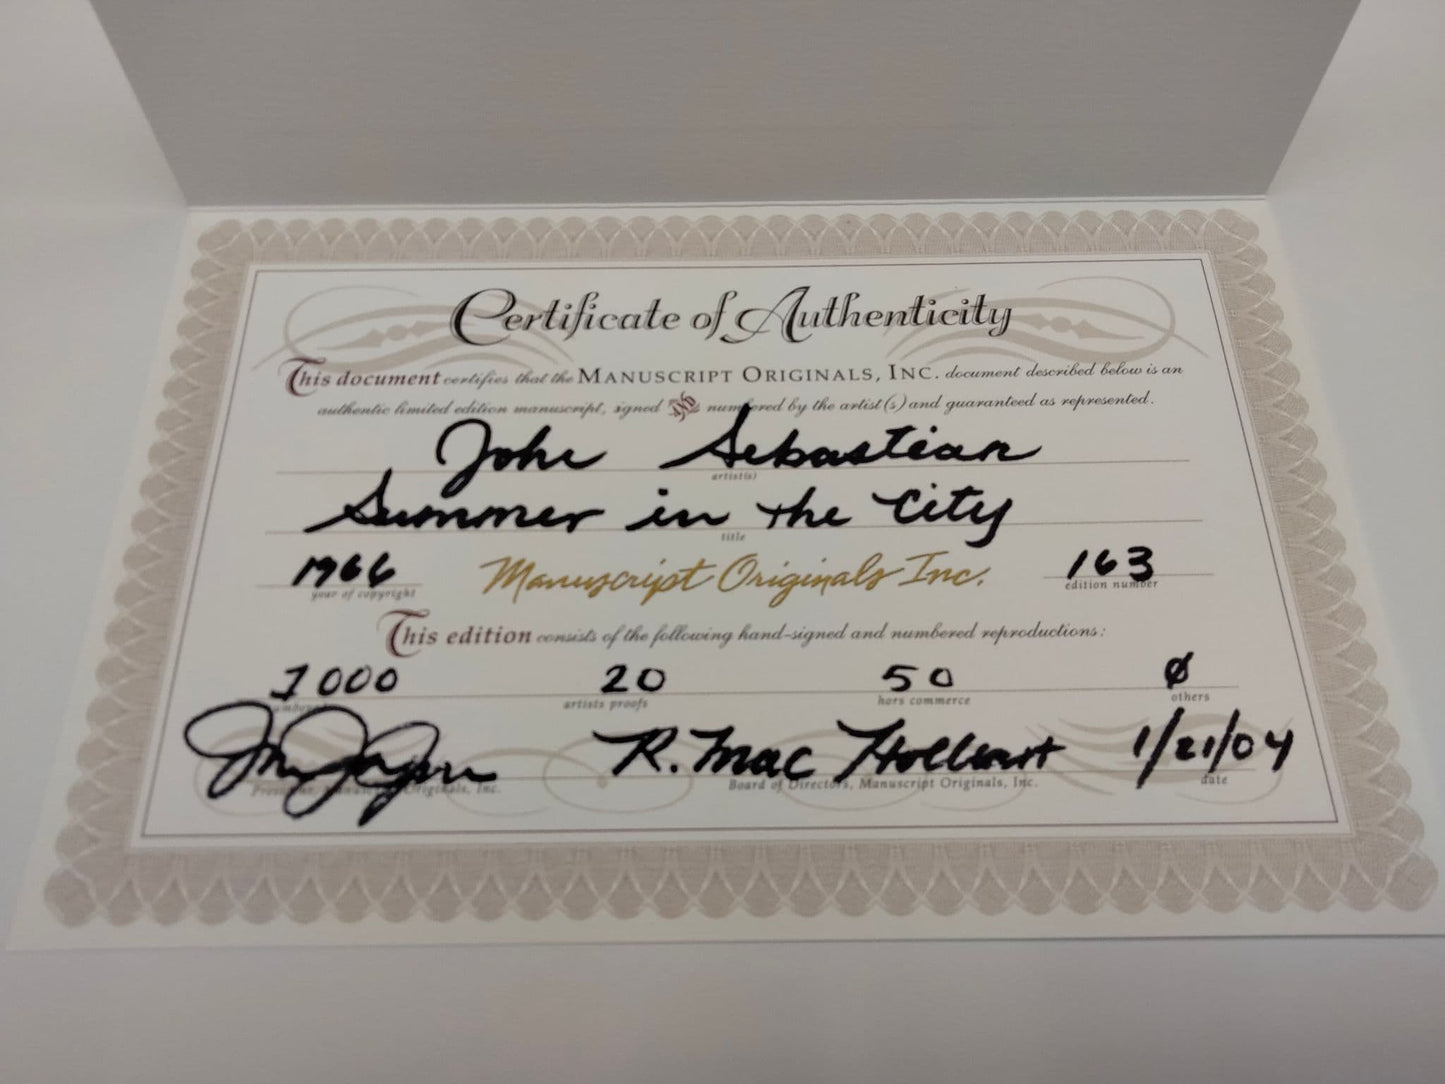 Certificate of Authenticity
This document certifies that the MANUSCRIPT ORIGINALS, INC. document described below is an
authentic limited edition manuscript, signed AND numbered by the artist(s) and guaranteed as represented.
John Sebastian
artist(s)
Summer in the City
title
1966 Manuscript Originals Inc. 163
year of copyright edition number
This edition consists of the following hand-signed and numbered reproductions:
1000 20 50 Ø
numbered artists proofs hors commerce others
R. Mac Holbert 1/21/04
President, Manuscript Originals, Inc. Board of Directors, Manuscript Originals, Inc. date